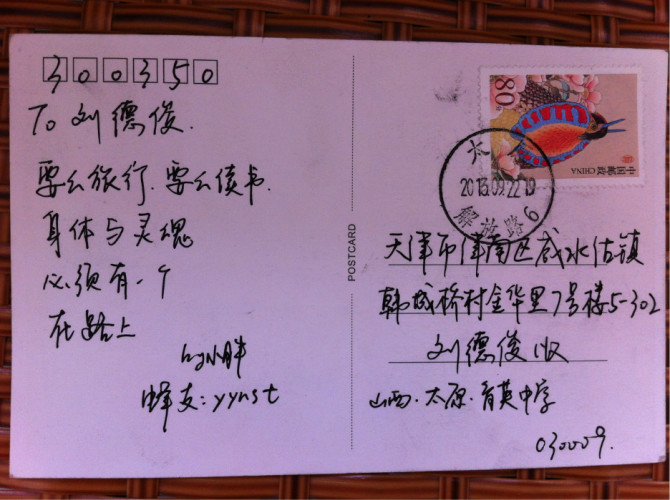 300350
To 刘德俊.
要么旅行.要么读书.
身体与灵魂
必须有一个
在路上
by小胖
蜂友:yynst
POSTCARD
80分
中国邮政 CHINA
太
2013.09.22.19
解放路6
天津市津南区咸水沽镇
韩城桥村金华里7号楼5-302
刘德俊收
山西.太原.育英中学
030009.